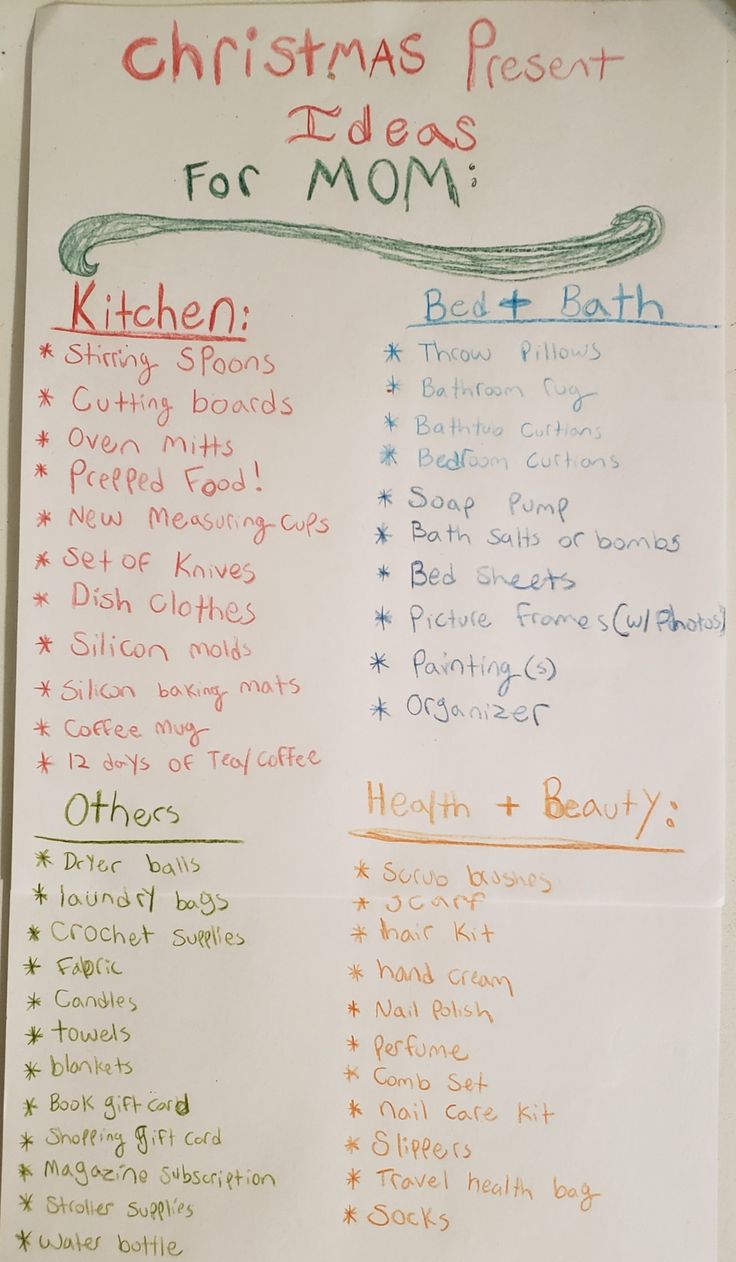 Christmas Present
Ideas
For MOM:
Kitchen:
* Stirring Spoons
* Cutting boards
* Oven Mitts
* Prepped Food!
* New Measuring Cups
* Set of Knives
* Dish Clothes
* Silicon molds
* Silicon baking mats
* Coffee mug
* 12 days of Tea/Coffee
Bed + Bath
* Throw Pillows
* Bathroom rug
* Bathtub Curtians
* Bedroom Curtians
* Soap Pump
* Bath Salts or bombs
* Bed Sheets
* Picture Frames (w/ Photos)
* Painting(s)
* Organizer
Others
* Dryer balls
* laundry bags
* Crochet Supplies
* Fabric
* Candles
* towels
* blankets
* Book gift card
* Shopping gift card
* Magazine Subscription
* Stroller Supplies
* Water bottle
Health + Beauty:
* Scrub brushes
* Scarf
* hair Kit
* hand cream
* Nail Polish
* Perfume
* Comb Set
* nail Care Kit
* Slippers
* Travel health bag
* Socks